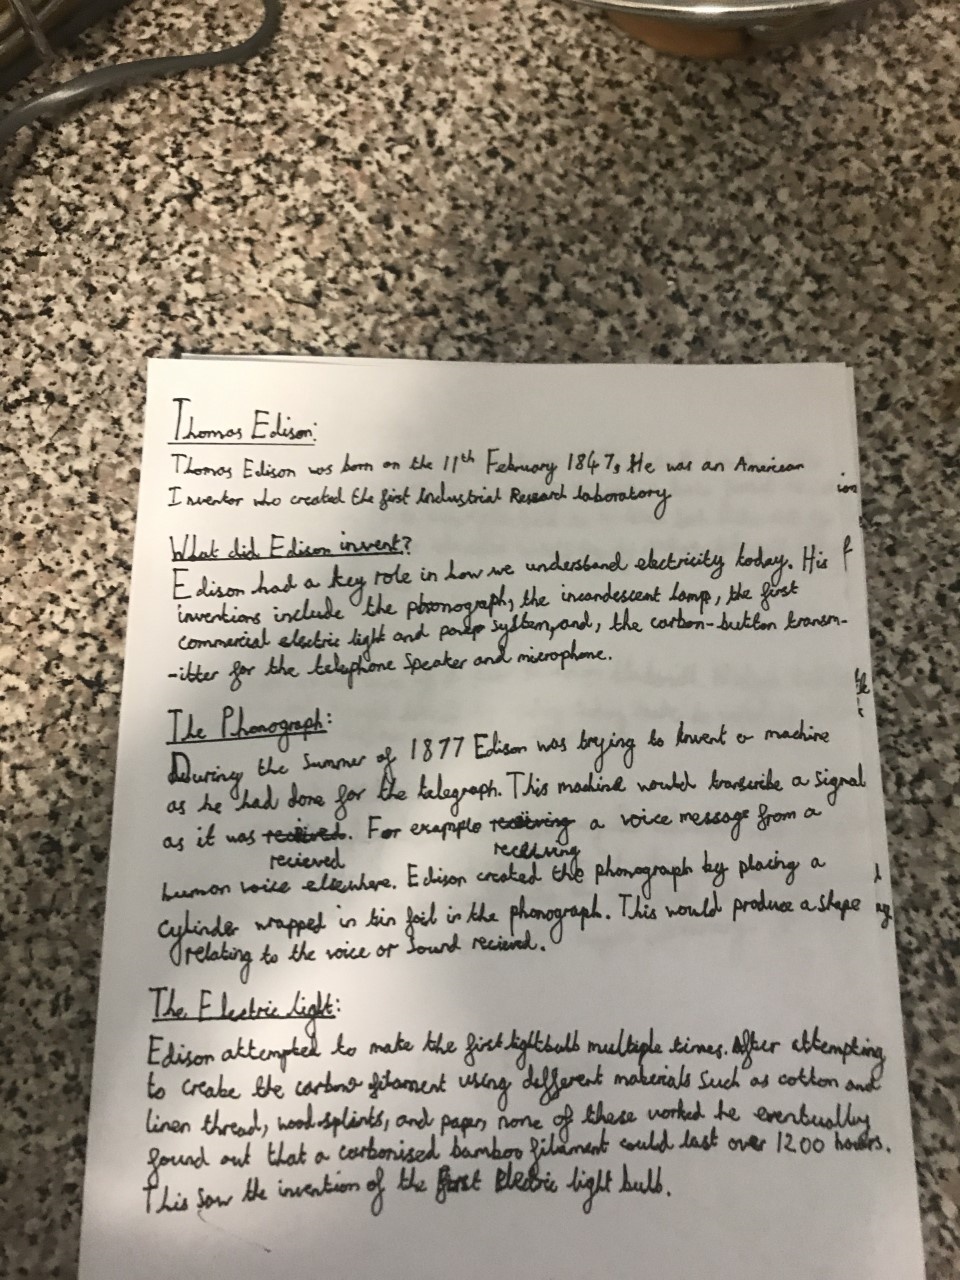 Thomas Edison:
Thomas Edison was born on the 11th February 1847, He was an American
Inventor who created the first Industrial Research laboratory
What did Edison invent?
Edison had a key role in how we understand electricity today. His
inventions include the phonograph, the incandescent lamp, the first
commercial electric light and power system, and, the carbon-button transm-
-itter for the telephone Speaker and microphone.
The Phonograph:
During the Summer of 1877 Edison was trying to Invent a machine
as he had done for the telegraph. This machine would transcribe a signal
as it was recieved. For example receiving a voice message from a
recieved receiving
human voice elsewhere. Edison created the phonograph by placing a
cylinder wrapped in tin foil in the phonograph. This would produce a shape
relating to the voice or sound recieved.
The Electric light:
Edison attempted to make the first lightbulb multiple times. After attempting
to create the carbon filament using different materials such as cotton and
linen thread, wood splints, and paper, none of these worked he eventually
found out that a carbonised bamboo filament could last over 1200 hours.
This saw the invention of the first Electric light bulb.